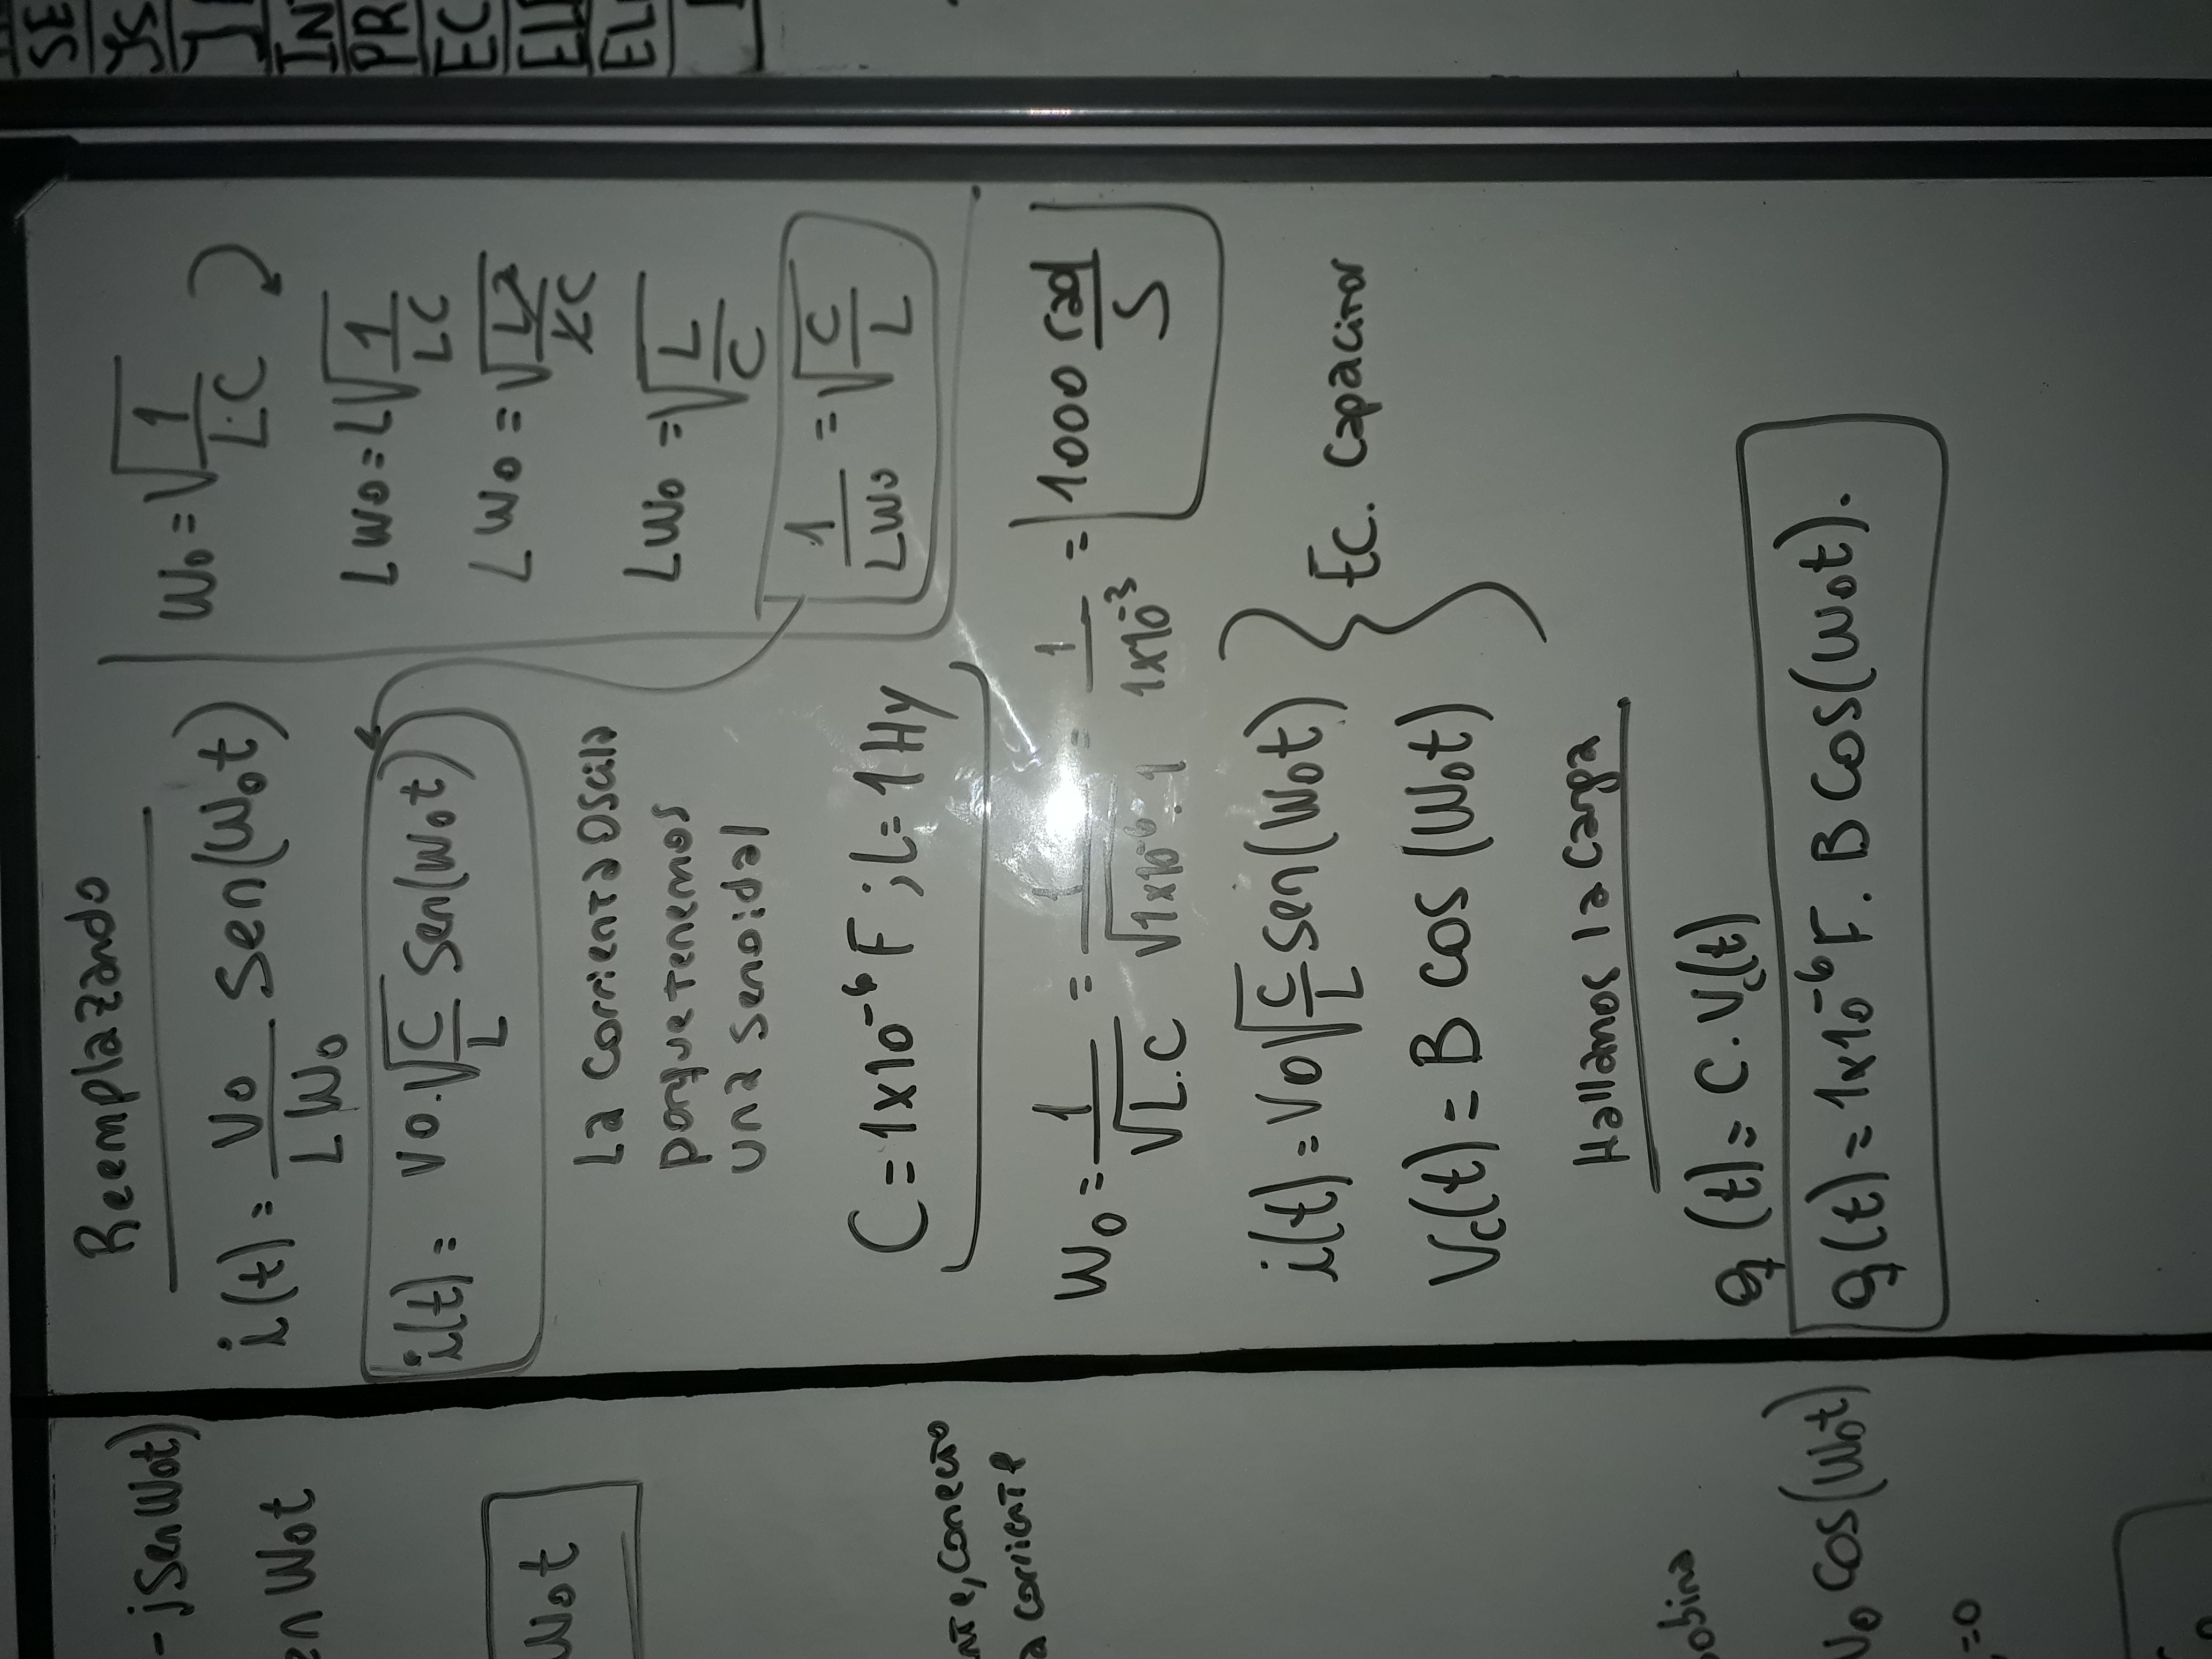 -jSenWot)
en Wot
Wot
nte, conecto
a corriente
bobina
Vo Cos(Wot)
=0
Reemplazando
i(t) = Vo/(L Wo) Sen(Wot)
i(t) = Vo.√(C/L) Sen(Wot)
La Corriente Oscila
porque tenemos
una senoidal
C = 1x10⁻⁶ F ; L = 1 Hy
Wo = √(1/(L.C))
LWo = L√(1/(LC))
LWo = √(L²/(LC))
LWo = √(L/C)
1/(LWo) = √(C/L)
Wo = 1/√(L.C) = 1/√(1x10⁻⁶ . 1) = 1/(1x10⁻³) = 1000 rad/S
i(t) = Vo√(C/L) sen(Wot)
Vc(t) = B cos (Wot)
Ec. Capacitor
Hallamos la Carga
q(t) = C.Vc(t)
q(t) = 1x10⁻⁶ F. B Cos(Wot).
SE
IN
PR
EC
EL
EL